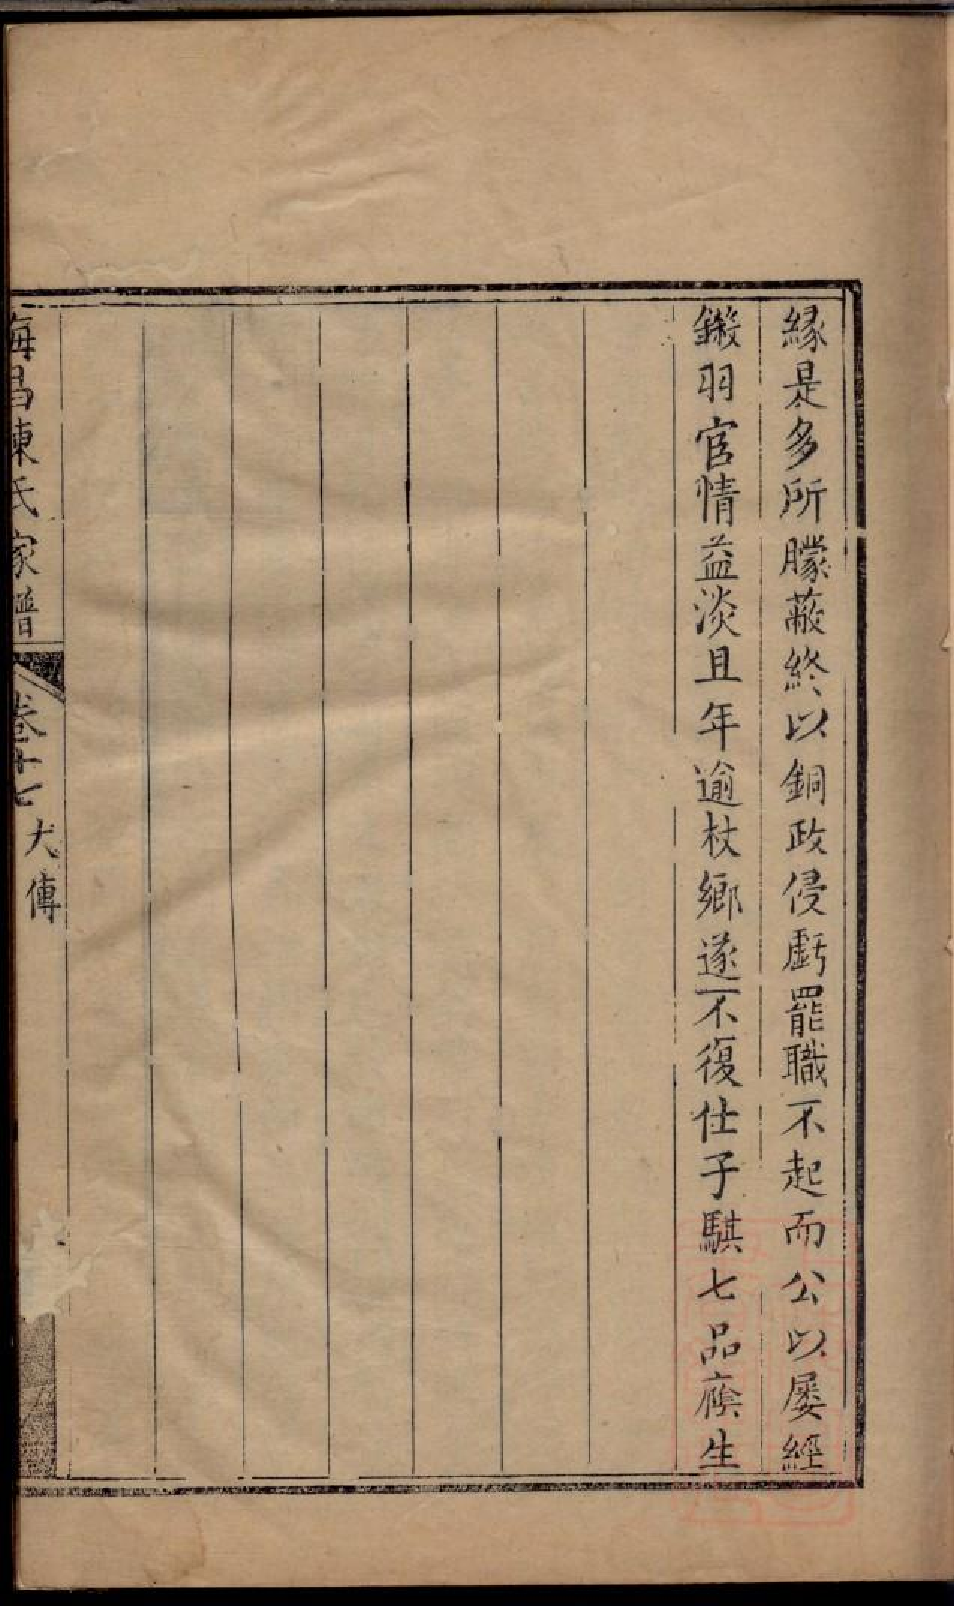 縁是多所朦蔽終以銅政侵虧罷職不起而公以屡經
鎩羽官情益淡且年逾杖鄉遂不復仕子騏七品廕生
海昌陳氏家譜
卷十七
大傳